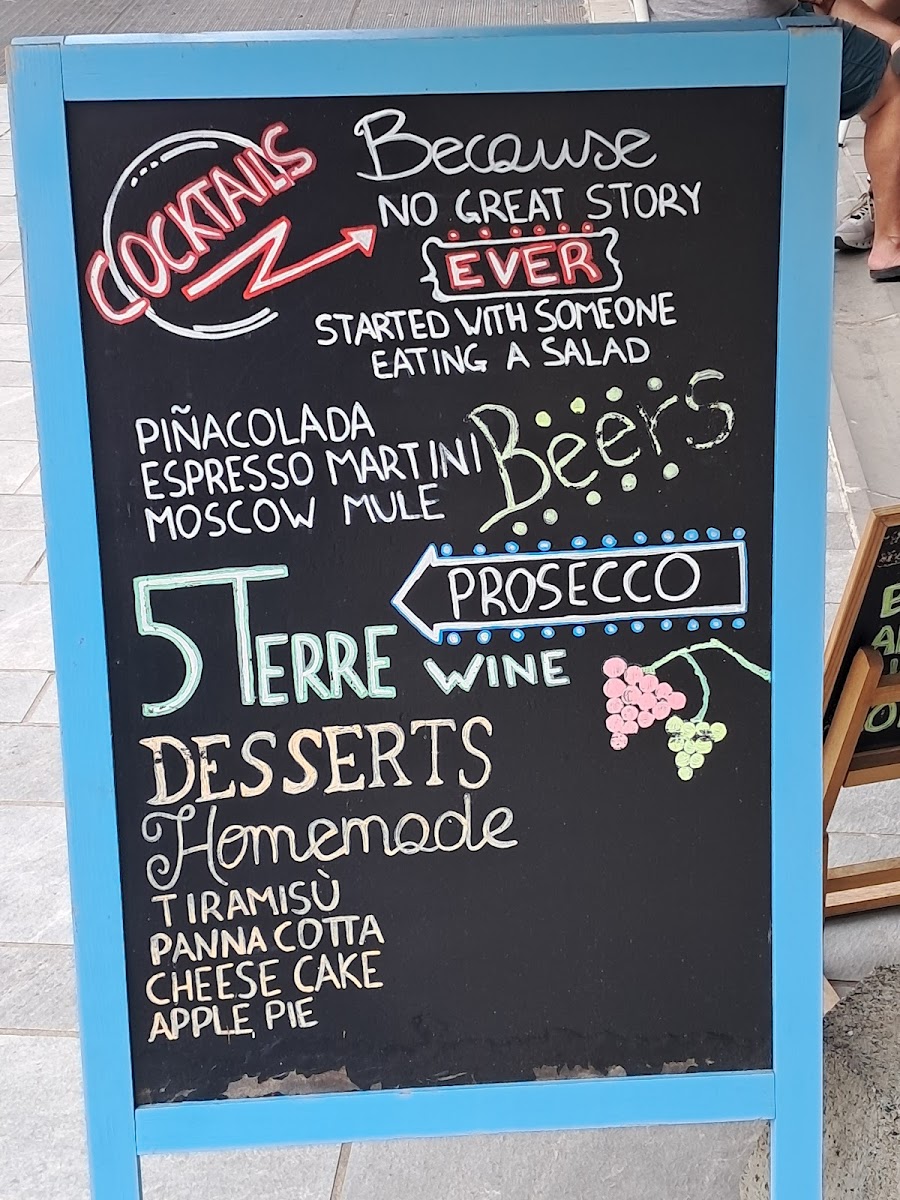 COCKTAILS
Because
NO GREAT STORY
EVER
STARTED WITH SOMEONE
EATING A SALAD
PIÑACOLADA
ESPRESSO MARTINI
MOSCOW MULE
Beers
PROSECCO
5TERRE WINE
DESSERTS
Homemade
TIRAMISÙ
PANNA COTTA
CHEESE CAKE
APPLE PIE